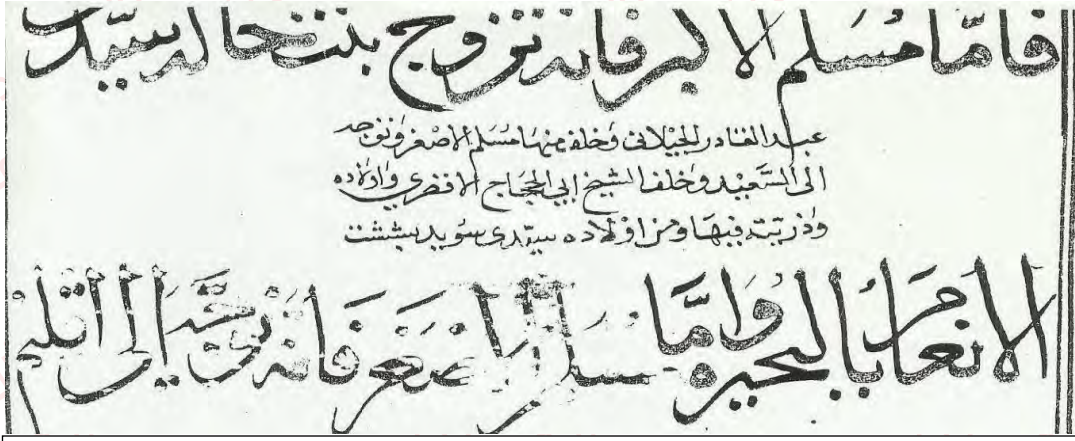 فامّا مُسلم الاكبر فانه تزوج ببنت خاله سيّد
عبد القادر الجيلانى وخلف منها مُسلم الاصغر وتوجه
الى السَّعِيْد وخلف الشيخ ابي الحجاج الاقصري واولاده
وذريته فيها ومن اولاده سيّدى سويد ببششت
الانعام بالبحيره وامَّا مسلم الاصغر فانه توجَّه إلى اتليم